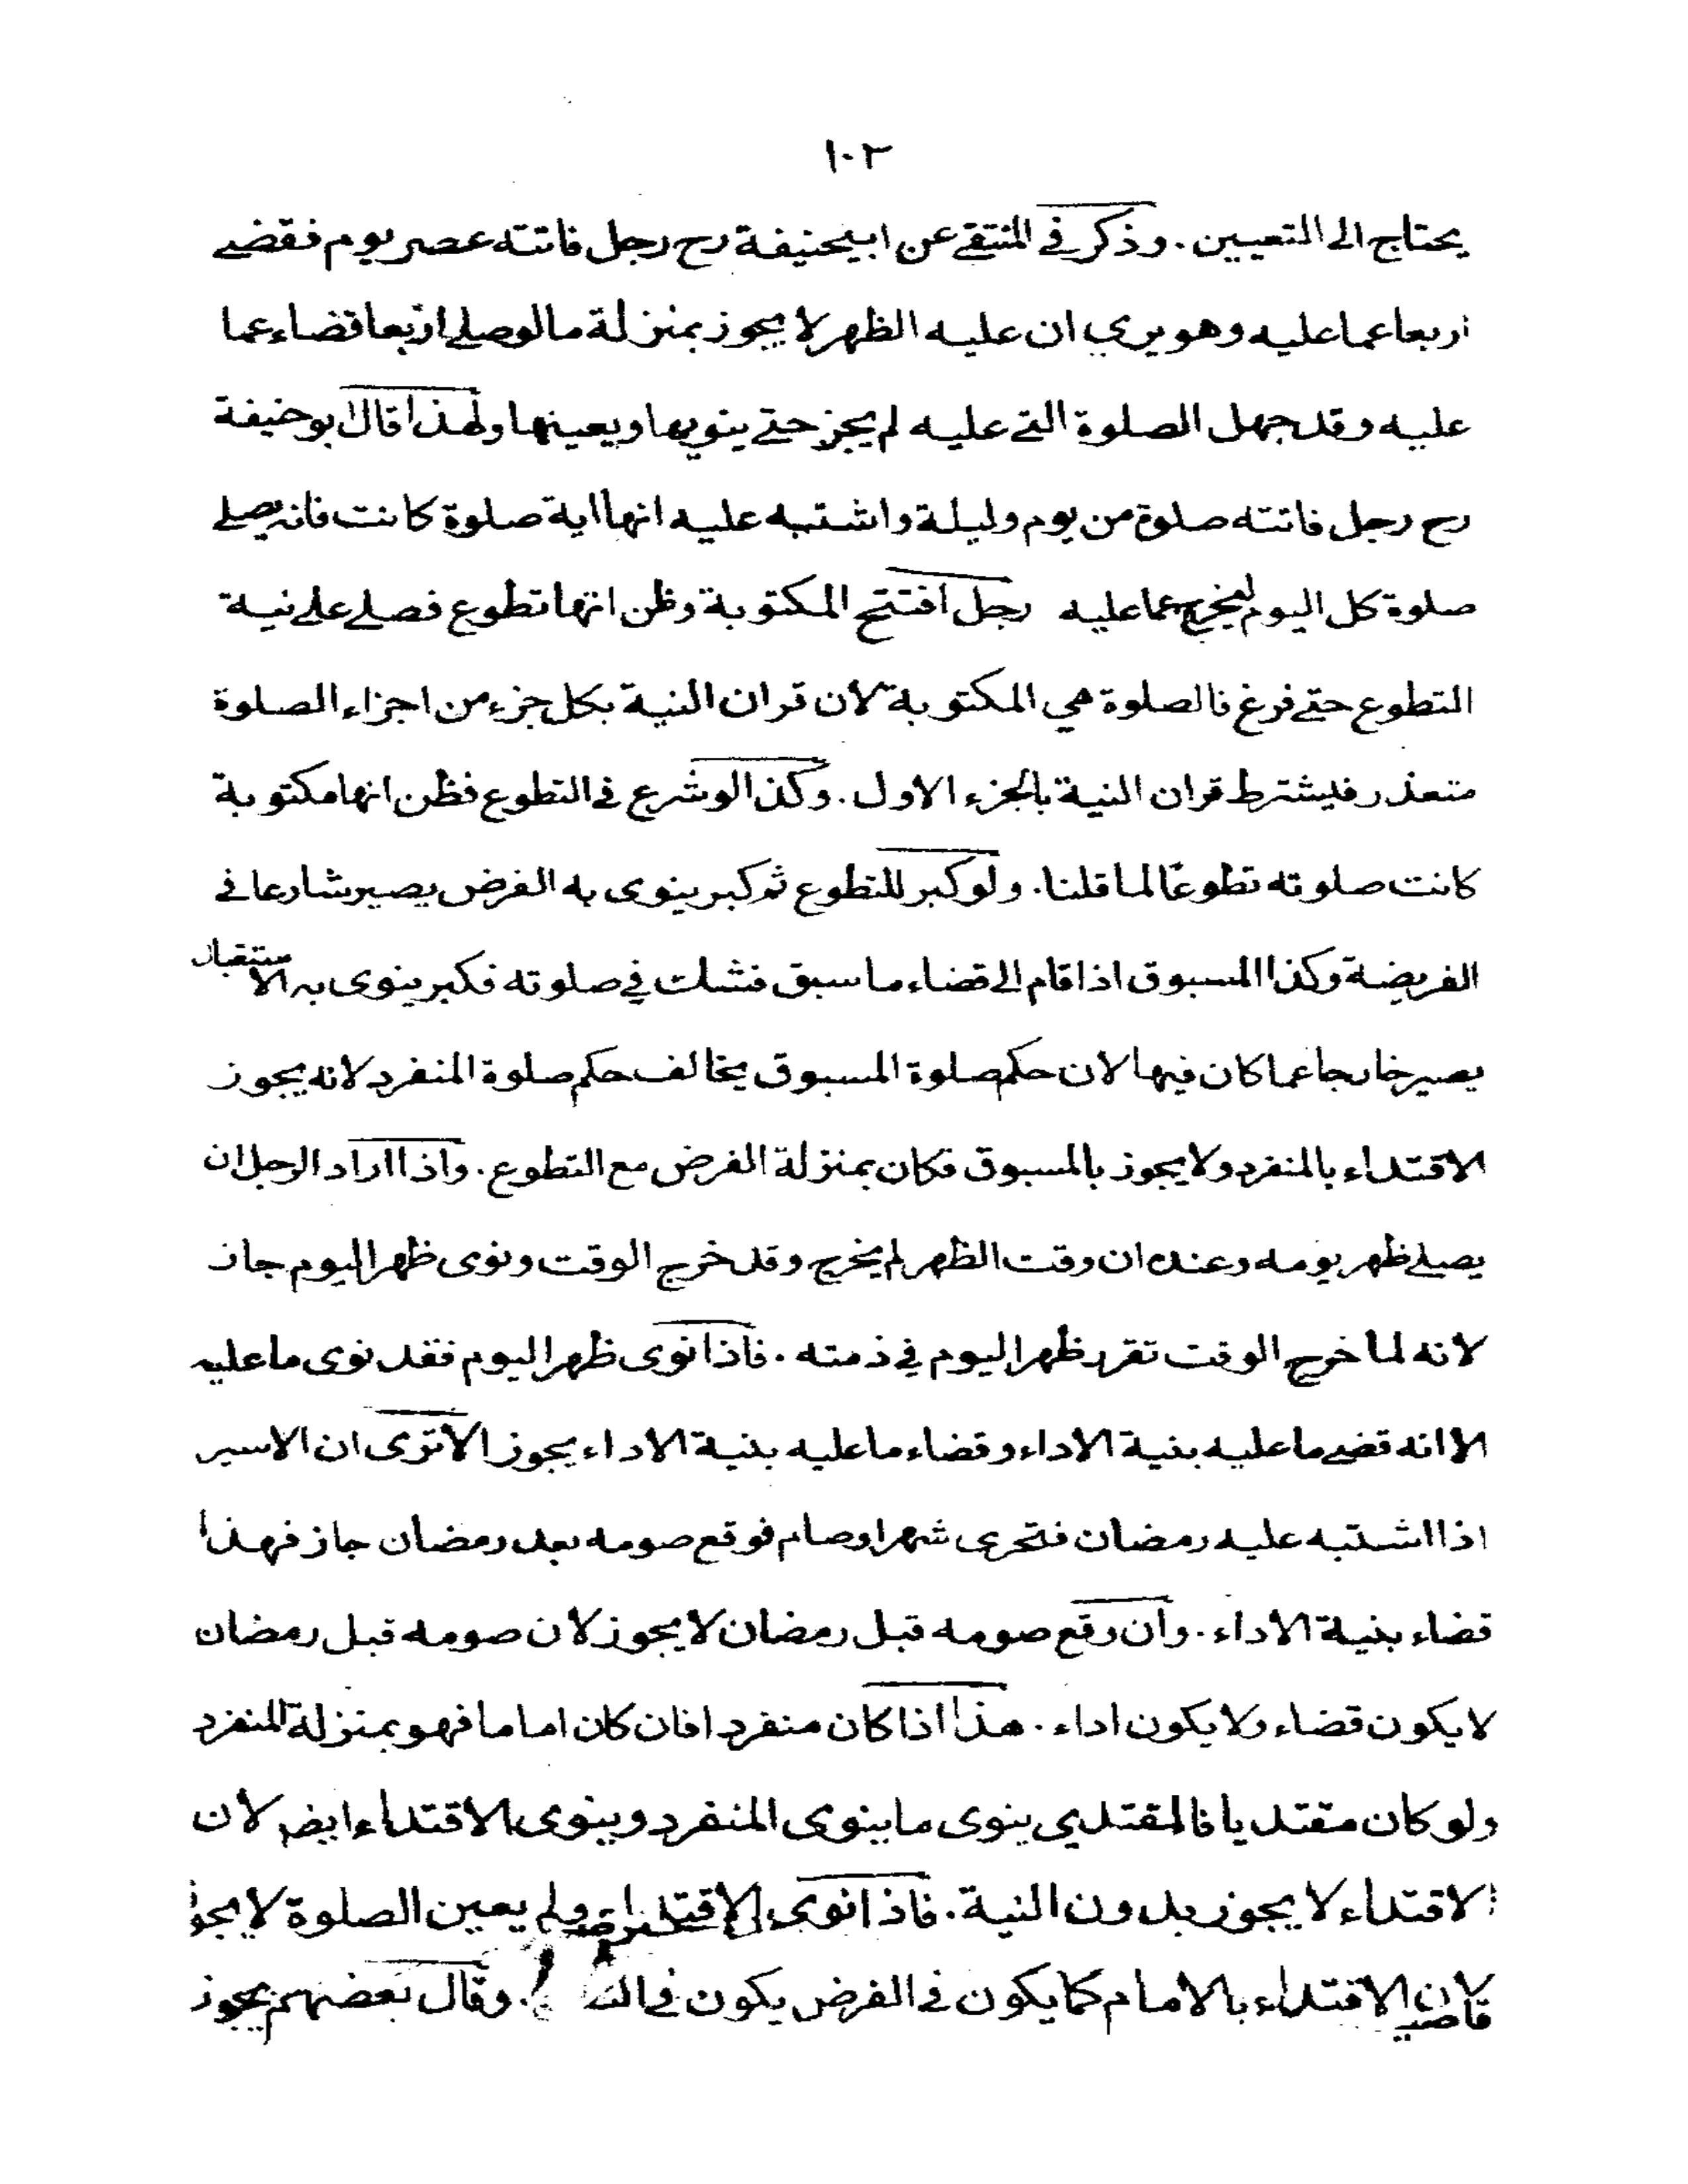 ١٠٢
يحتاج الى التعيين . وذكر في المنتقے عن ابيحنيفة رح رجل فاتته عصر يوم فقضے
اربعا عما عليه وهو يرى ان عليه الظهر لا يجوز بمنزلة ما لو صلے اربعا قضاء عما
عليه وقد جهل الصلوة التے عليه لم يجز حتے ينويها ويعينها ولهذا قال ابو حنيفة
رح رجل فاتته صلوة من يوم وليلة واشتبه عليه انها اية صلوة كانت فانه يصلے
صلوة كل اليوم ليخرج عما عليه رجل افتتح المكتوبة وظن انها تطوع فصلے علے نية
التطوع حتے فرغ فالصلوة هي المكتوبة لان قران النية بكل جزء من اجزاء الصلوة
متعذر فيشترط قران النية بالجزء الاول . وكذا لو شرع في التطوع فظن انها مكتوبة
كانت صلوته تطوعا لما قلنا . ولو كبر للتطوع ثم كبر ينوى به الفرض يصير شارعا في
الفريضة وكذا المسبوق اذا قام الى قضاء ما سبق فشك في صلوته فكبر ينوى به الاستقبال
يصير خارجا عما كان فيها لان حكم صلوة المسبوق يخالف حكم صلوة المنفرد لانه يجوز
الاقتداء بالمنفرد ولا يجوز بالمسبوق فكان بمنزلة الفرض مع التطوع . واذا اراد الرجل ان
يصلے ظهر يومه وعنده ان وقت الظهر لم يخرج وقد خرج الوقت ونوى ظهر اليوم جاز
لانه لما خرج الوقت تقرر ظهر اليوم في ذمته . فاذا نوى ظهر اليوم فقد نوى ما عليه
الا انه قضے ما عليه بنية الاداء وقضاء ما عليه بنية الاداء يجوز الا ترى ان الاسير
اذا اشتبه عليه رمضان فتحرى شهرا وصام فوقع صومه بعد رمضان جاز فهذا
قضاء بنية الاداء . وان وقع صومه قبل رمضان لا يجوز لان صومه قبل رمضان
لا يكون قضاء ولا يكون اداء . هذا اذا كان منفردا فان كان اماما فهو بمنزلة المنفرد
ولو كان مقتديا فالمقتدي ينوى ما ينوى المنفرد وينوى الاقتداء ايضم لان
الاقتداء لا يجوز بدون النية . فاذا نوى الاقتداء ولم يعين الصلوة لا يجوز
لان الاقتداء بالامام كما يكون في الفرض يكون في . وقال بعضهم يجوز